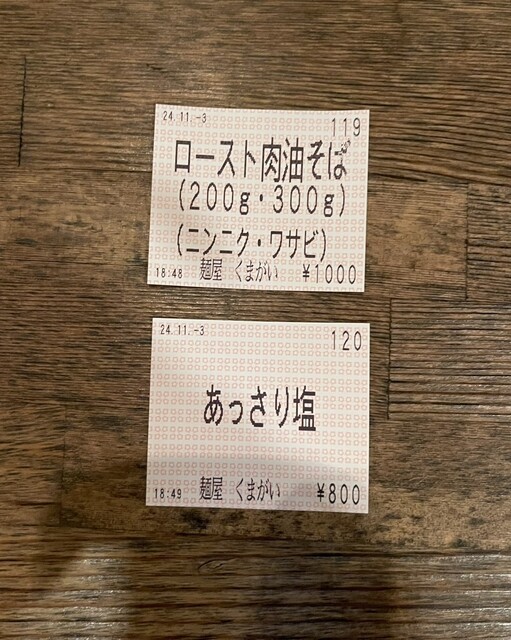 24.11.-3
119
ロースト肉油そば
(200g・300g)
(ニンニク・ワサビ)
18:48 麺屋 くまがい ¥1000
24.11.-3
120
あっさり塩
18:49 麺屋 くまがい ¥800